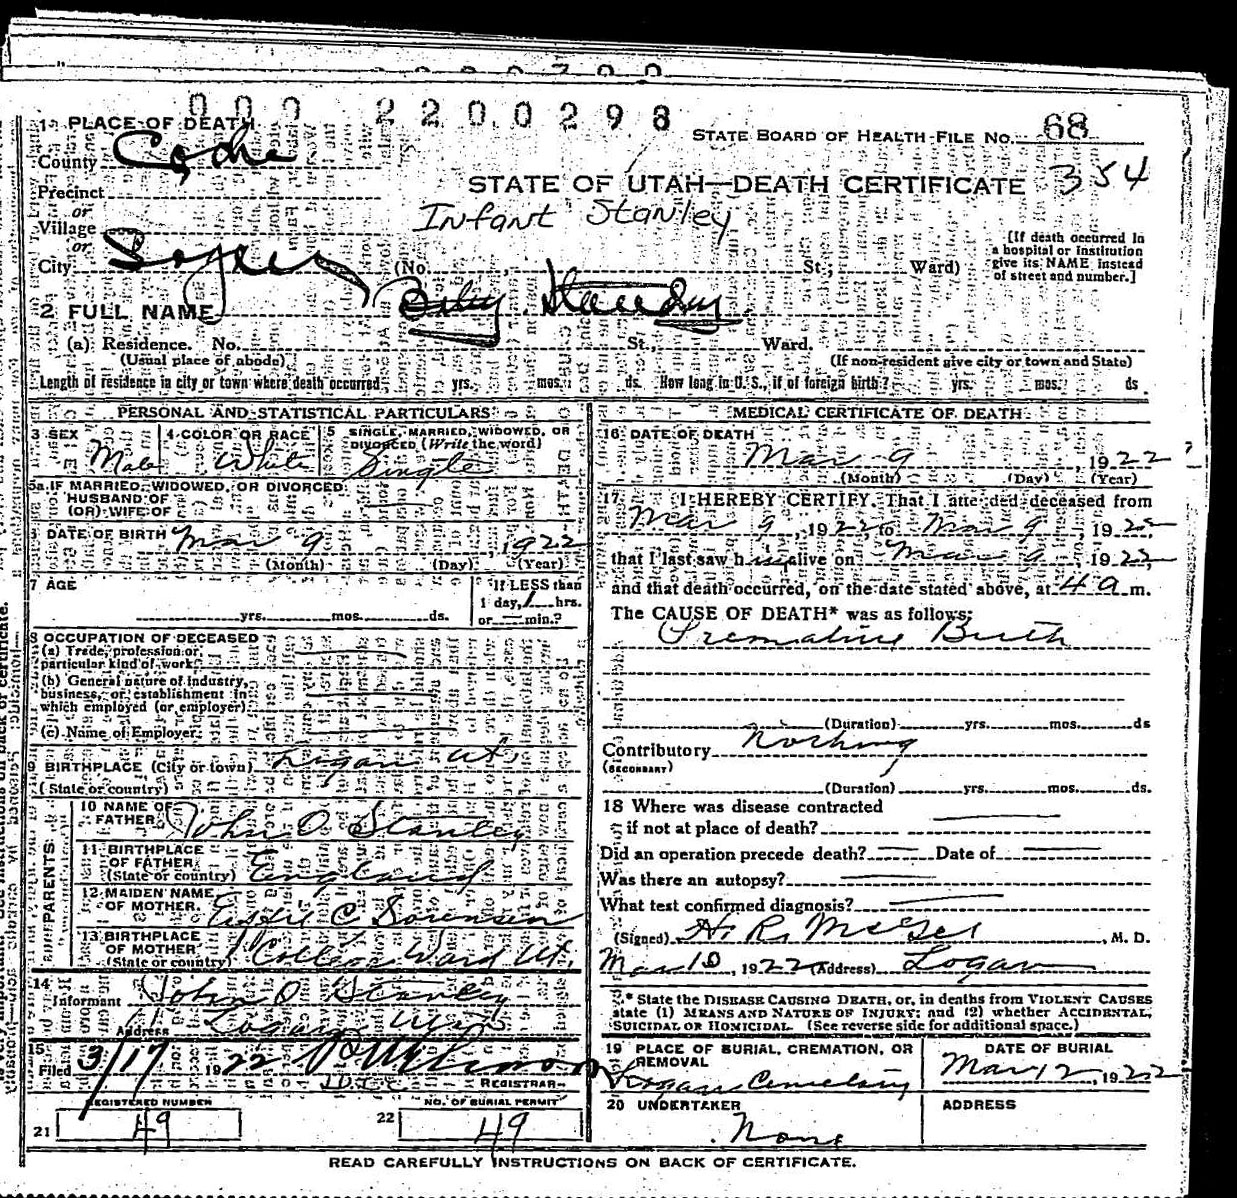 0002200298
1 PLACE OF DEATH
STATE BOARD OF HEALTH-FILE NO. 68
County Cache
354
Precinct
STATE OF UTAH—DEATH CERTIFICATE
or
Village
Infant Stanley
or
City Logan (No. St.; Ward)
[If death occurred in a hospital or institution give its NAME instead of street and number.]
2 FULL NAME Baby Stanley
(a) Residence. No. St., Ward.
(Usual place of abode) (If non-resident give city or town and State)
Length of residence in city or town where death occurred yrs. mos. ds. How long in U. S., if of foreign birth? yrs. mos. ds.
PERSONAL AND STATISTICAL PARTICULARS
3 SEX Male
4 COLOR OR RACE White
5 SINGLE, MARRIED, WIDOWED, OR DIVORCED (Write the word) Single
5a IF MARRIED, WIDOWED, OR DIVORCED
HUSBAND OF
(OR) WIFE OF
6 DATE OF BIRTH Mar 9, 1922
(Month) (Day) (Year)
7 AGE
yrs. mos. ds.
If LESS than
1 day, 1 hrs.
or — min.?
8 OCCUPATION OF DECEASED
(a) Trade, profession or,
particular kind of work
(b) General nature of industry,
business, or establishment in
which employed (or employer)
(c) Name of Employer
9 BIRTHPLACE (City or town) Logan Ut.
(State or country)
PARENTS
10 NAME OF FATHER John O Stanley
11 BIRTHPLACE OF FATHER (State or country) England
12 MAIDEN NAME OF MOTHER C Sorensen
13 BIRTHPLACE OF MOTHER (State or country) College Ward Ut.
14 Informant John O Stanley
Address Logan Utah
15 Filed 3/17 1922
REGISTRAR
REGISTERED NUMBER
21 49
NO. OF BURIAL PERMIT
22 49
MEDICAL CERTIFICATE OF DEATH
16 DATE OF DEATH
Mar 9, 1922
(Month) (Day) (Year)
17 I HEREBY CERTIFY, That I attended deceased from
Mar 9, 1922, to Mar 9, 1922
that I last saw h im alive on Mar 9, 1922,
and that death occurred, on the date stated above, at 4 a m.
The CAUSE OF DEATH* was as follows:
Premature Birth
(Duration) yrs. mos. ds
Contributory Nothing
(SECONDARY)
(Duration) yrs. mos. ds.
18 Where was disease contracted
if not at place of death? —
Did an operation precede death? — Date of —
Was there an autopsy? —
What test confirmed diagnosis? —
(Signed) H. R. McGee, M. D.
Mar 10, 1922 (Address) Logan
* State the DISEASE CAUSING DEATH, or, in deaths from VIOLENT CAUSES
state (1) MEANS AND NATURE OF INJURY; and (2) whether ACCIDENTAL,
SUICIDAL OR HOMICIDAL. (See reverse side for additional space.)
19 PLACE OF BURIAL, CREMATION, OR REMOVAL
Logan Cemetery
DATE OF BURIAL
Mar 12, 1922
20 UNDERTAKER
None
ADDRESS
READ CAREFULLY INSTRUCTIONS ON BACK OF CERTIFICATE.